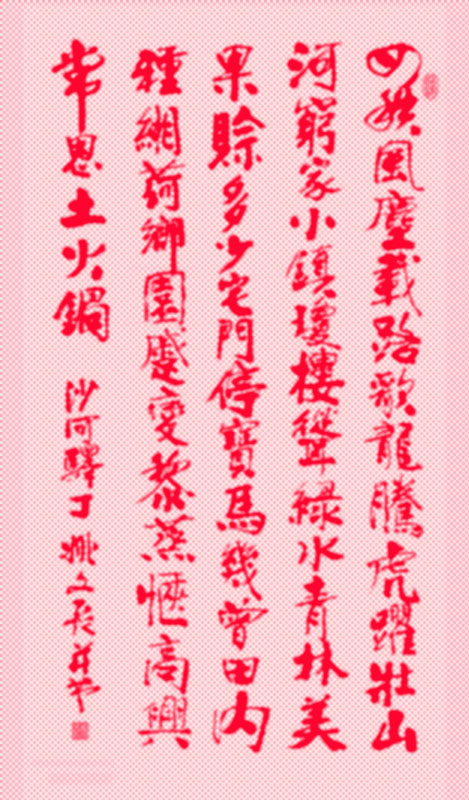 四秩風塵載路歌龍騰虎躍壯山
河窮家小鎮瓊樓聳綠水青林美
果賒多少宅門停寶馬幾曾田内
種網荷鄉園變黎蒸愜高興
常思土火鍋 沙河驛丁姚文長并书